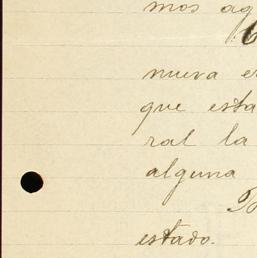 mos ag
nueva e
que esta
ral la
alguna
estado.